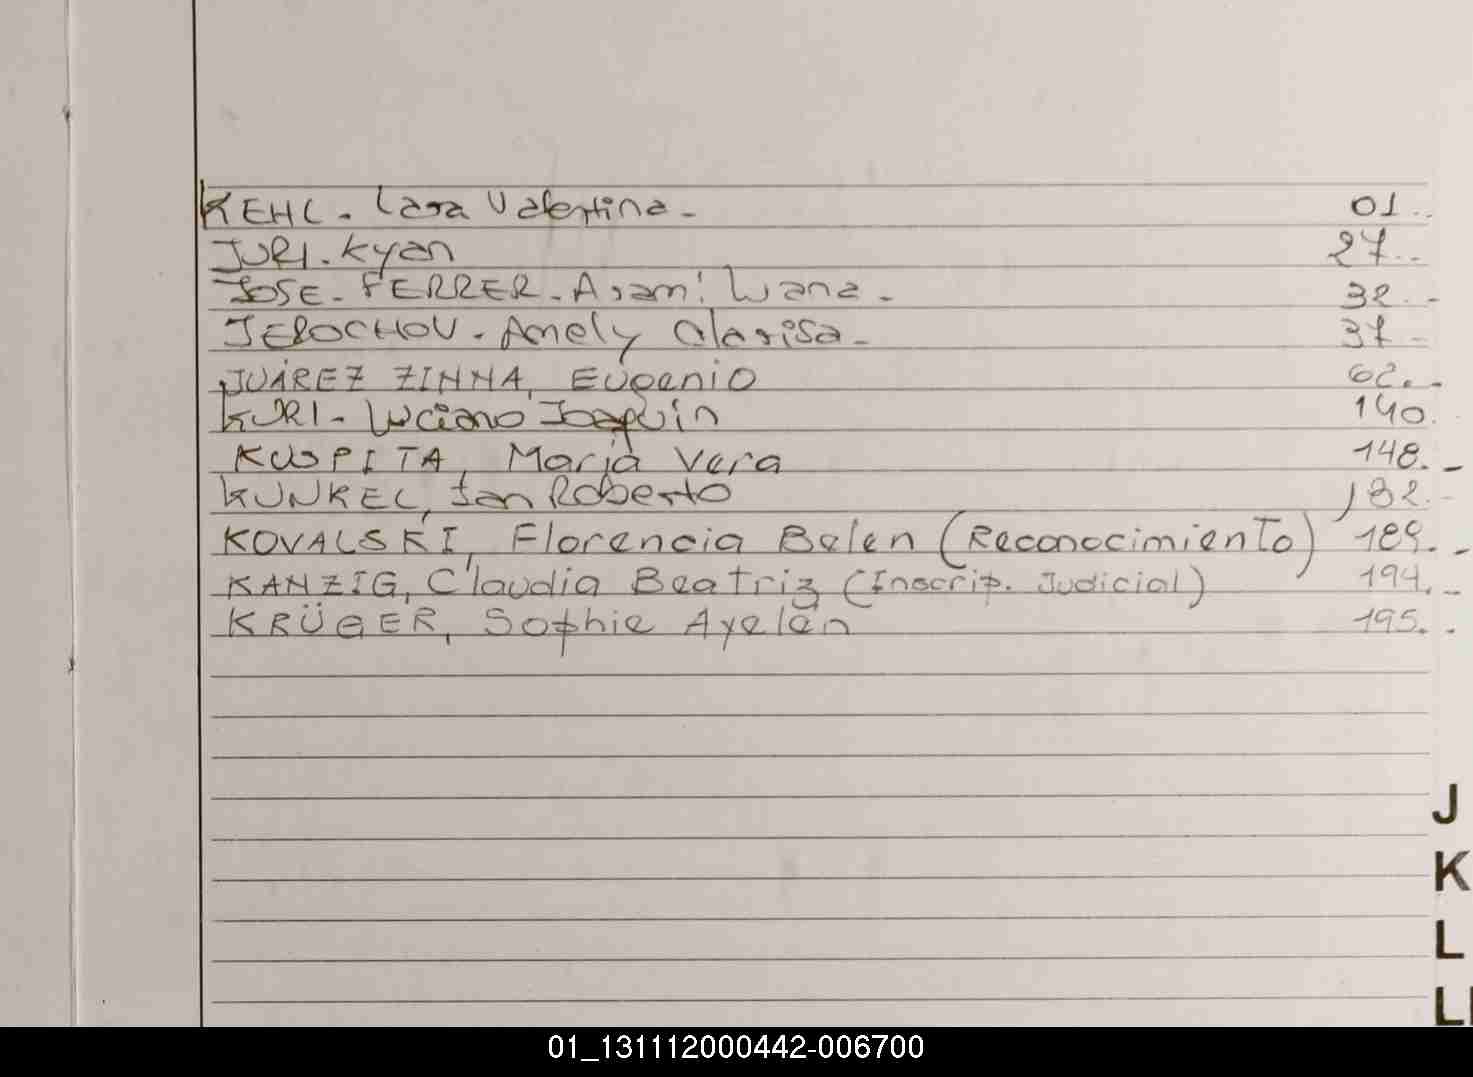 KEHL. Lara Valentina - 01..
JURI. Kyan 27..
JOSE - FERRER - Arami Luana - 32..-
JEROCHOV - Amely Clarisa - 37-
JUÁREZ ZINNA, Eugenio 62.-
KURI - Luciano Joaquin 140.
KUSPITA, María Vera 148.-
KUNKEL, Ian Roberto 182.-
KOVALSKI, Florencia Belen (Reconocimiento) 189.-
KANZIG, Claudia Beatriz (Inscrip. Judicial) 194.-
KRÜGER, Sophie Ayelén 195..
J
K
L
01_131112000442-006700